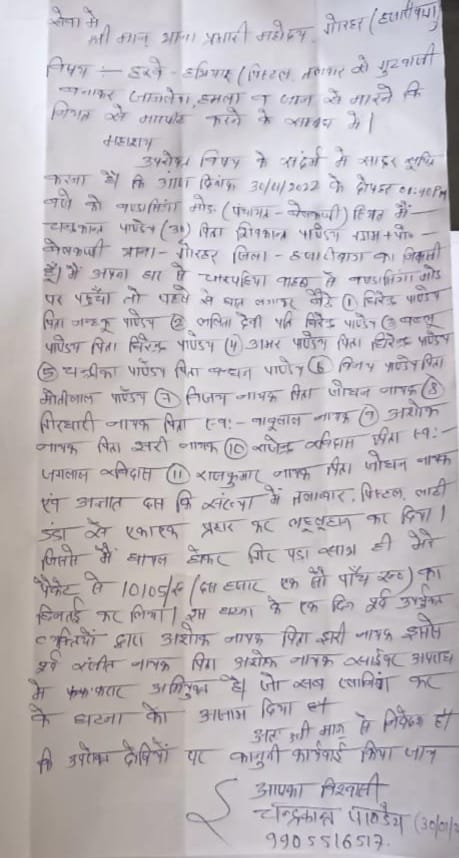 सेवा में
श्री मान् थाना प्रभारी महोदय, गोरहर (हजारीबाग)
विषय :- हरवे - हथियार (पिस्टल, तलवार से गुटबाजी
बनाकर जानलेवा हमला व जान से मारने कि
नियत से मारपीट करने के सम्बन्ध में।
महाशय
उपरोक्त विषय के संदर्भ में सादर सूचित
करना है। कि आज दिनांक 30/01/2022 के दोपहर 01:40PM
बजे को मोड़ (पंचायत - बेलकप्पी) स्थित मैं -
चन्द्रकान्त पाण्डेय (30) पिता शिवकान्त पाण्डेय ग्राम+पो० -
बेलकप्पी थाना - गोरहर जिला - हजारीबाग का निवासी
हूँ। मैं अपना घर से चारपहिया वाहन से मोड़
पर पहुँचा तो पहले से घात लगाकर बैठे ① धिरेन्द्र पाण्डेय
पिता पाण्डेय ② ललिता देवी पति धिरेन्द्र पाण्डेय ③ बब्लू
पाण्डेय पिता धिरेन्द्र पाण्डेय ④ अमर पाण्डेय पिता धिरेन्द्र पाण्डेय
⑤ चन्द्रीका पाण्डेय पिता बच्चन पाण्डेय ⑥ विजय पाण्डेय पिता
मोतीलाल पाण्डेय ⑦ विजय नायक पिता जोधन नायक ⑧
गिरधारी नायक पिता स्व:- बाबूलाल नायक ⑨ अशोक
नायक पिता झरी नायक ⑩ राजेन्द्र रविदास पिता स्व:-
जगलाल रविदास ⑪ राजकुमार नायक पिता जोधन नायक
एवं अज्ञात दस कि संख्या में तलवार, पिस्टल, लाठी
डंडा से एकाएक प्रहार कर लहूलूहान कर दिया।
जिससे मैं घायल होकर गिर पड़ा साथ ही मेरे
पैकेट से 10105/रु (दस हजार एक सौ पाँच रू०) का
छिनतई कर लिया। इस घटना के एक दिन पूर्व उपर्युक्त
व्यक्तियों द्वारा अशोक नायक पिता झरी नायक इससे
पूर्व संजीत नायक पिता अशोक नायक साईबर अपराध
में फरार अभियुक्त है। जो सब कर
के घटना को अंजाम दिया है।
अतः श्री मान् से निवेदन है।
कि उपरोक्त दोषियों पर कानूनी कार्रवाई किया जाय
आपका विश्वासी
चन्द्रकान्त पाण्डेय (30/01/2
9905516517.